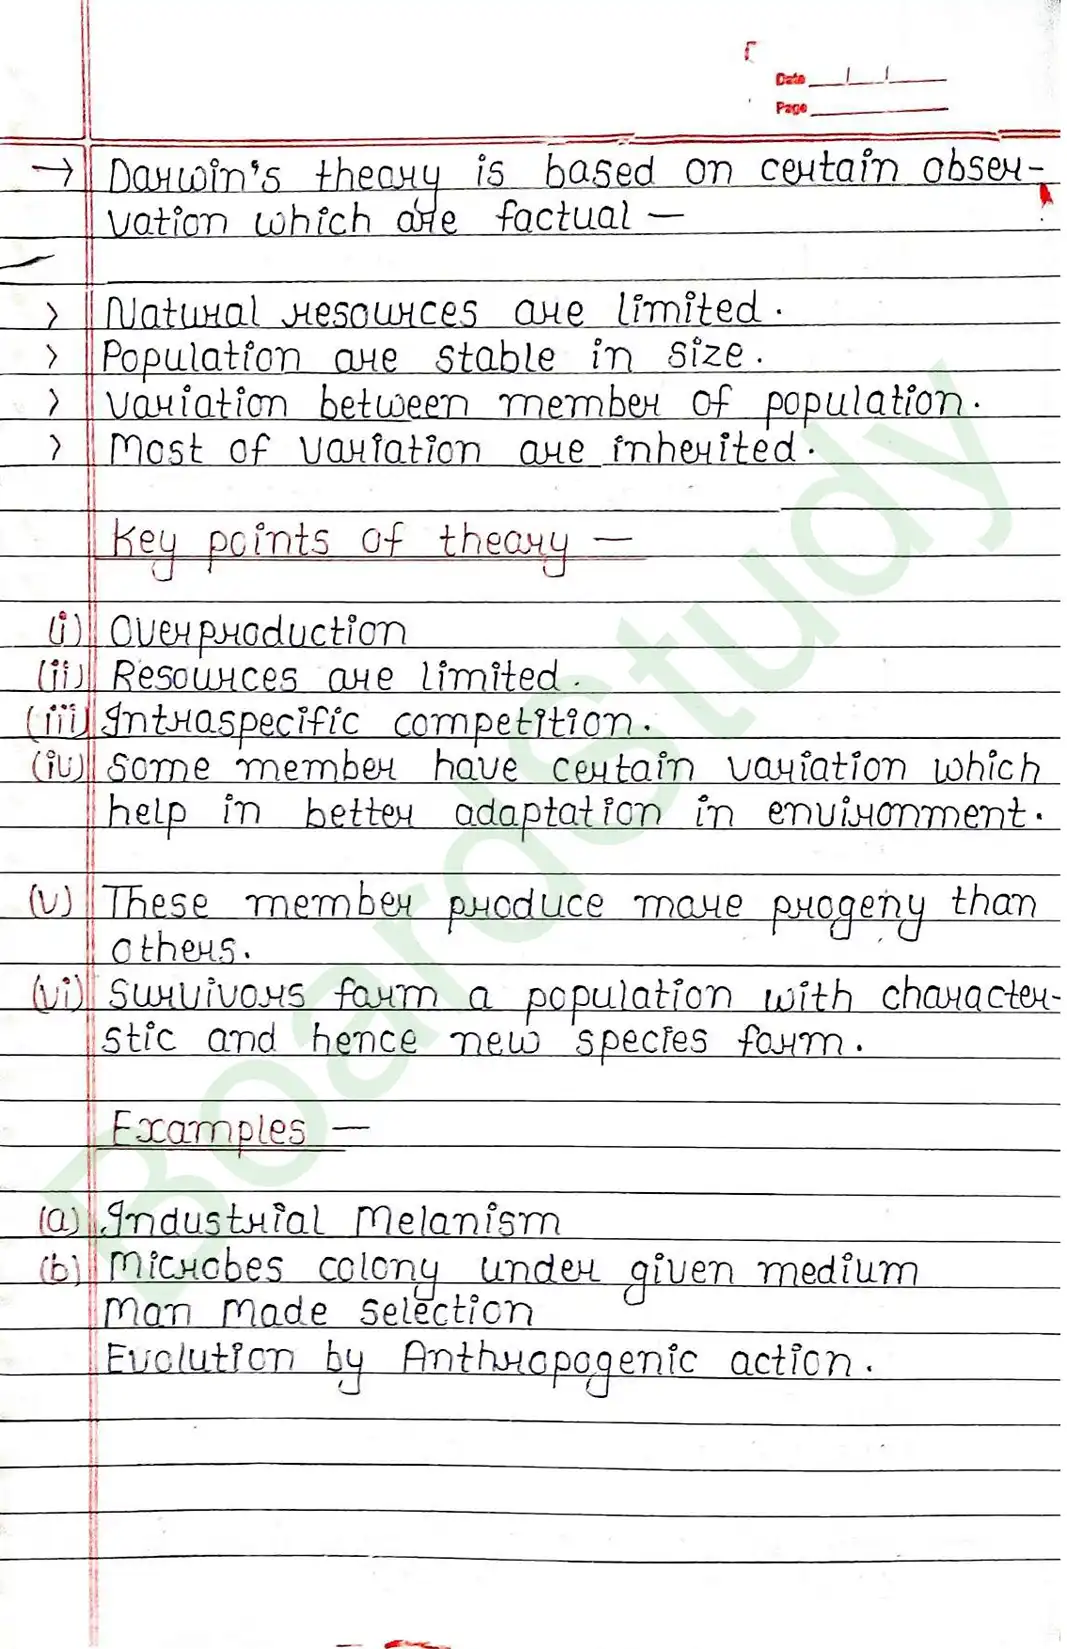 Date
Page
→ Darwin's theory is based on certain obser-
vation which are factual —
> Natural resources are limited.
> Population are stable in size.
> Variation between member of population.
> Most of variation are inherited.
Key points of theory —
(i) Overproduction
(ii) Resources are limited.
(iii) Intraspecific competition.
(iv) Some member have certain variation which
help in better adaptation in environment.
(v) These member produce more progeny than
others.
(vi) Survivors form a population with character-
stic and hence new species form.
Examples —
(a) Industrial Melanism
(b) Microbes colony under given medium
Man made selection
Evolution by Anthropogenic action.
BoardStudy